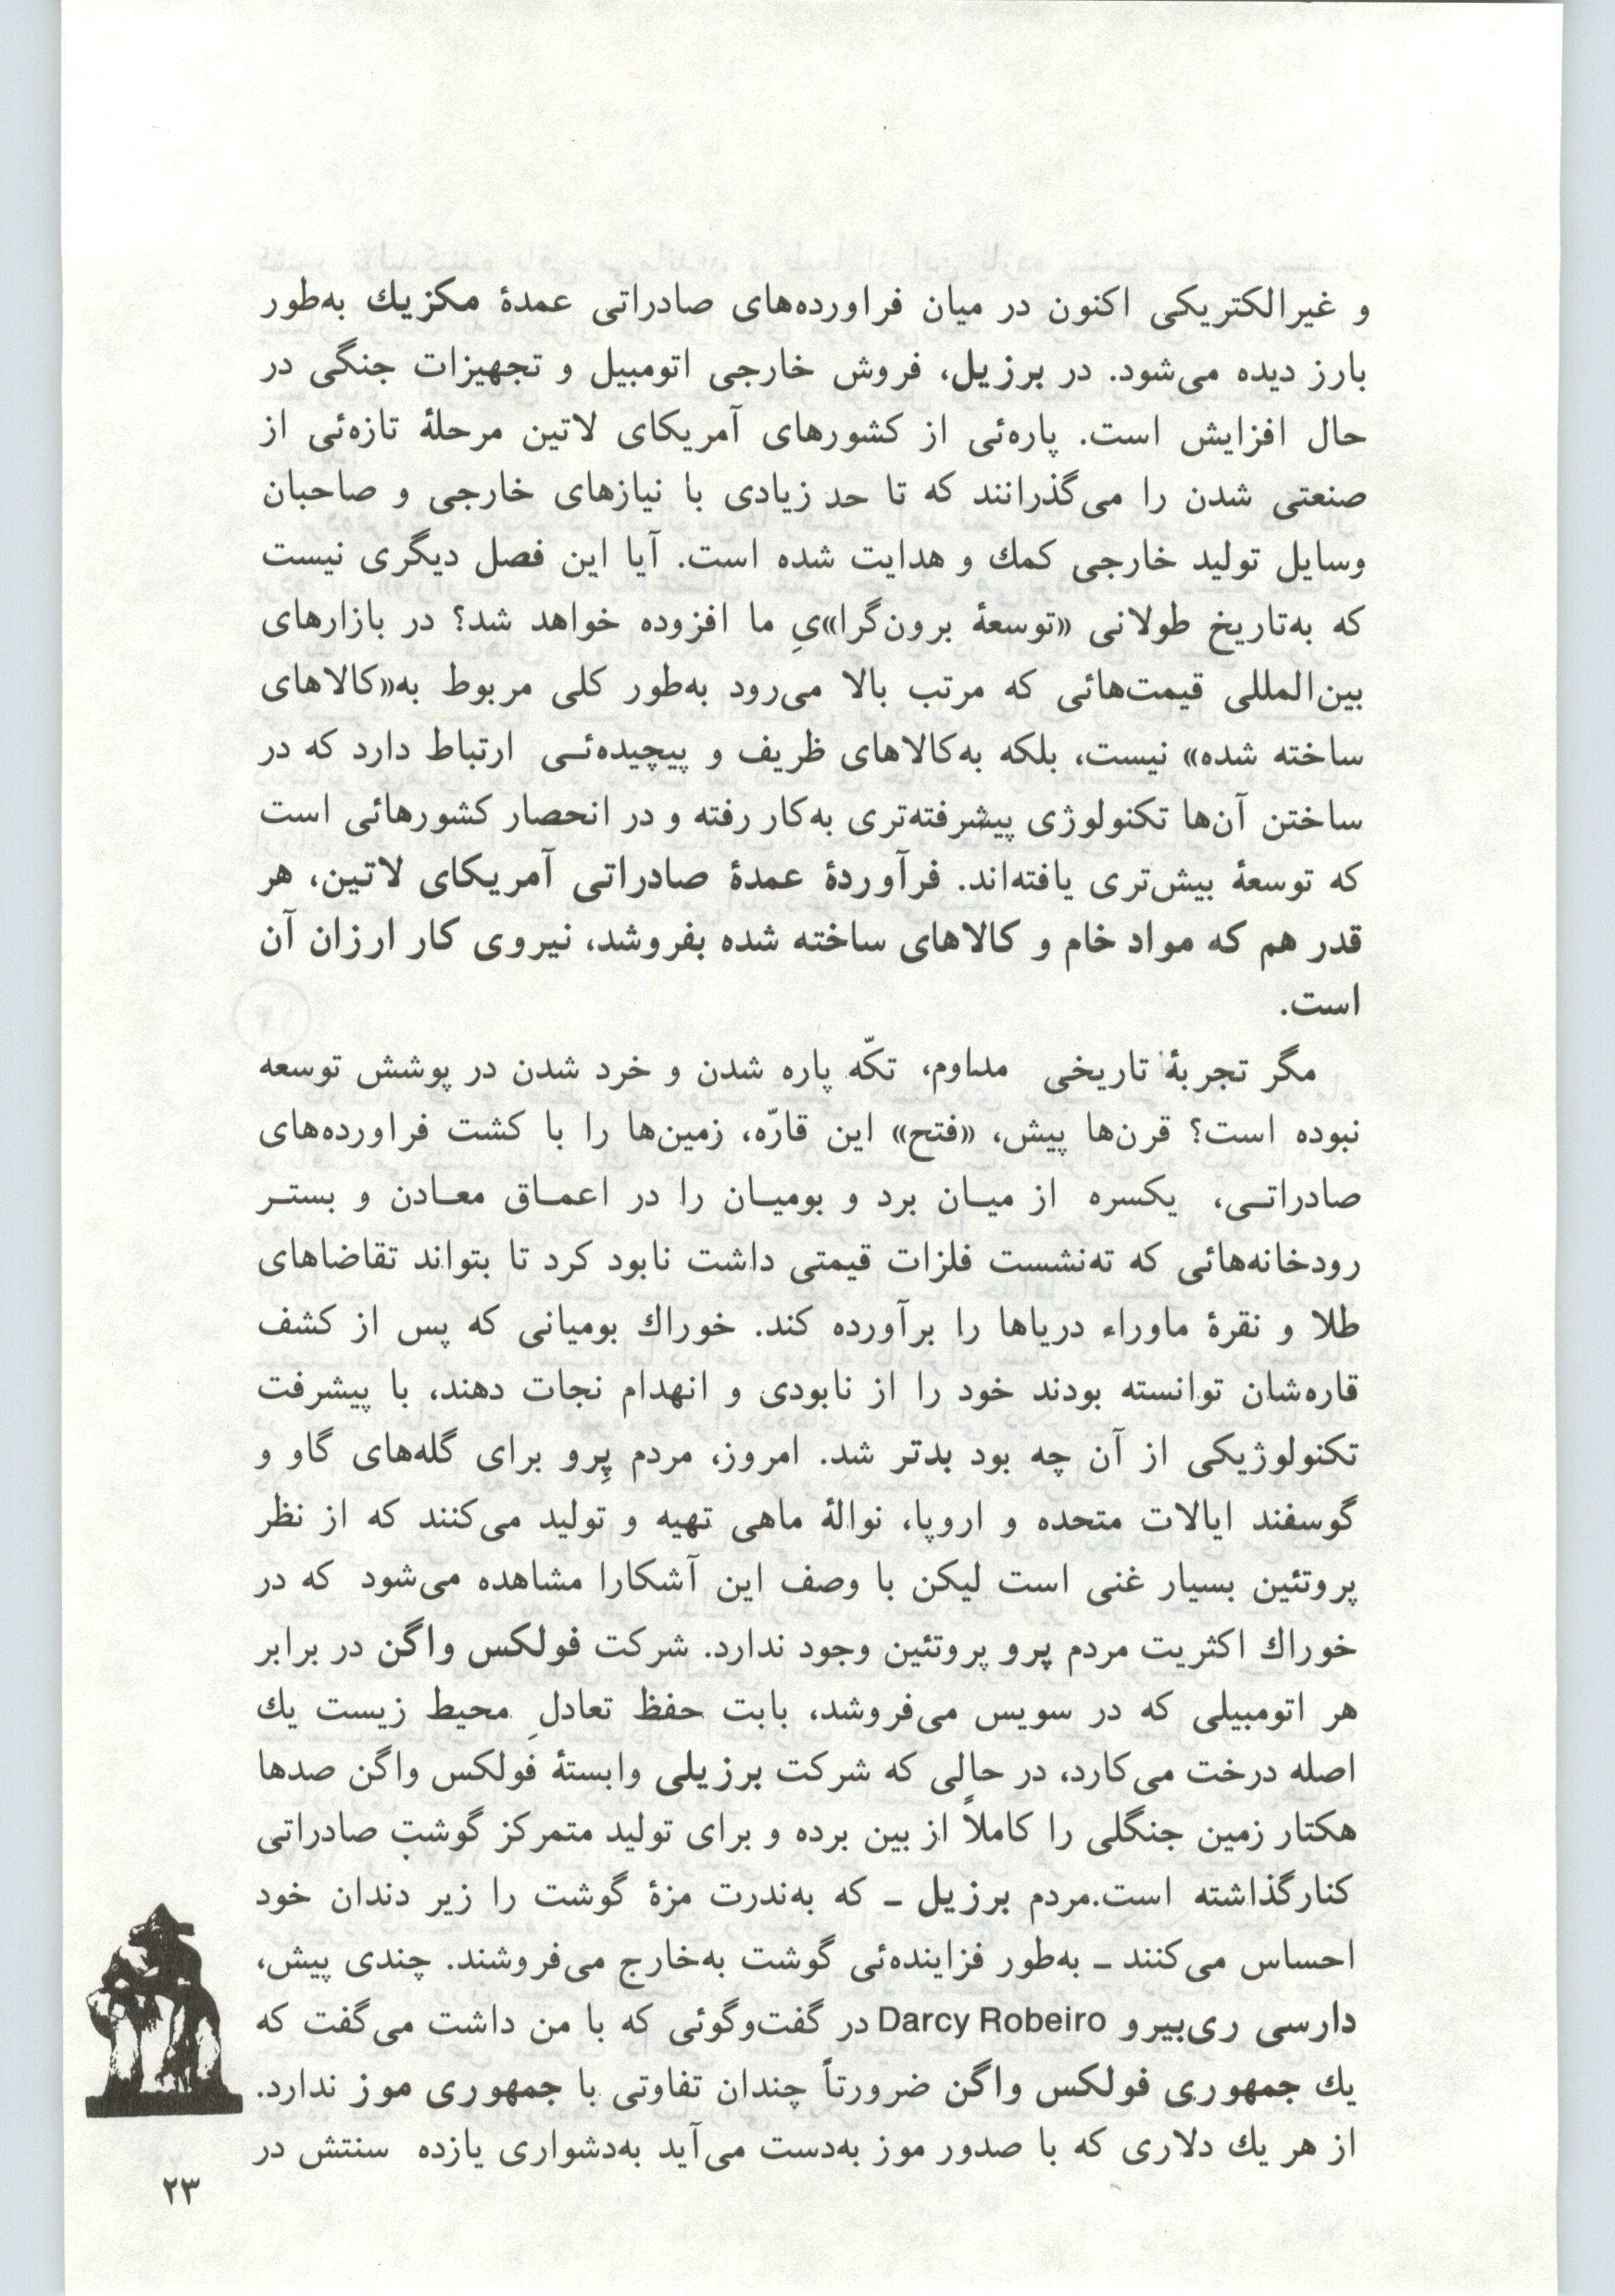 و غیرالکتریکی اکنون در میان فراورده‌های صادراتی عمدهٔ مکزیك به‌طور
بارز دیده می‌شود. در برزیل، فروش خارجی اتومبیل و تجهیزات جنگی در
حال افزایش است. پاره‌ئی از کشورهای آمریکای لاتین مرحلهٔ تازه‌ئی از
صنعتی شدن را می‌گذرانند که تا حد زیادی با نیازهای خارجی و صاحبان
وسایل تولید خارجی کمك و هدایت شده است. آیا این فصل دیگری نیست
که به‌تاریخ طولانی «توسعهٔ برون‌گرا»یِ ما افزوده خواهد شد؟ در بازارهای
بین‌المللی قیمت‌هائی که مرتب بالا می‌رود به‌طور کلی مربوط به«کالاهای
ساخته شده» نیست، بلکه به‌کالاهای ظریف و پیچیده‌ئـی ارتباط دارد که در
ساختن آن‌ها تکنولوژی پیشرفته‌تری به‌کار رفته و در انحصار کشورهائی است
که توسعهٔ بیش‌تری یافته‌اند. فرآوردهٔ عمدهٔ صادراتی آمریکای لاتین، هر
قدر هم که مواد خام و کالاهای ساخته شده بفروشد، نیروی کار ارزان آن
است.
مگر تجربهٔ تاریخی مداوم، تکّه پاره شدن و خرد شدن در پوشش توسعه
نبوده است؟ قرن‌ها پیش، «فتح» این قارّه، زمین‌ها را با کشت فراورده‌های
صادراتـی، یکسره از میـان برد و بومیـان را در اعمـاق معـادن و بستـر
رودخانه‌هائی که ته‌نشست فلزات قیمتی داشت نابود کرد تا بتواند تقاضاهای
طلا و نقرهٔ ماوراء دریاها را برآورده کند. خوراك بومیانی که پس از کشف
قاره‌شان توانسته بودند خود را از نابودی و انهدام نجات دهند، با پیشرفت
تکنولوژیکی از آن چه بود بدتر شد. امروز، مردم پِرو برای گله‌های گاو و
گوسفند ایالات متحده و اروپا، نوالهٔ ماهی تهیه و تولید می‌کنند که از نظر
پروتئین بسیار غنی است لیکن با وصف این آشکارا مشاهده می‌شود که در
خوراك اکثریت مردم پرو پروتئین وجود ندارد. شرکت فولکس واگن در برابر
هر اتومبیلی که در سویس می‌فروشد، بابت حفظ تعادلِ محیط زیست یك
اصله درخت می‌کارد، در حالی که شرکت برزیلی وابستهٔ فولکس واگن صدها
هکتار زمین جنگلی را کاملاً از بین برده و برای تولید متمرکز گوشتِ صادراتی
کنارگذاشته است.مردم برزیل ـ که به‌ندرت مزهٔ گوشت را زیر دندان خود
احساس می‌کنند ـ به‌طور فزاینده‌ئی گوشت به‌خارج می‌فروشند. چندی پیش،
دارسی ری‌بیرو Darcy Robeiro در گفت‌وگوئی که با من داشت می‌گفت که
یك جمهوری فولکس واگن ضرورتاً چندان تفاوتی با جمهوری موز ندارد.
از هر یك دلاری که با صدور موز به‌دست می‌آید به‌دشواری یازده سنتش در
۲۳